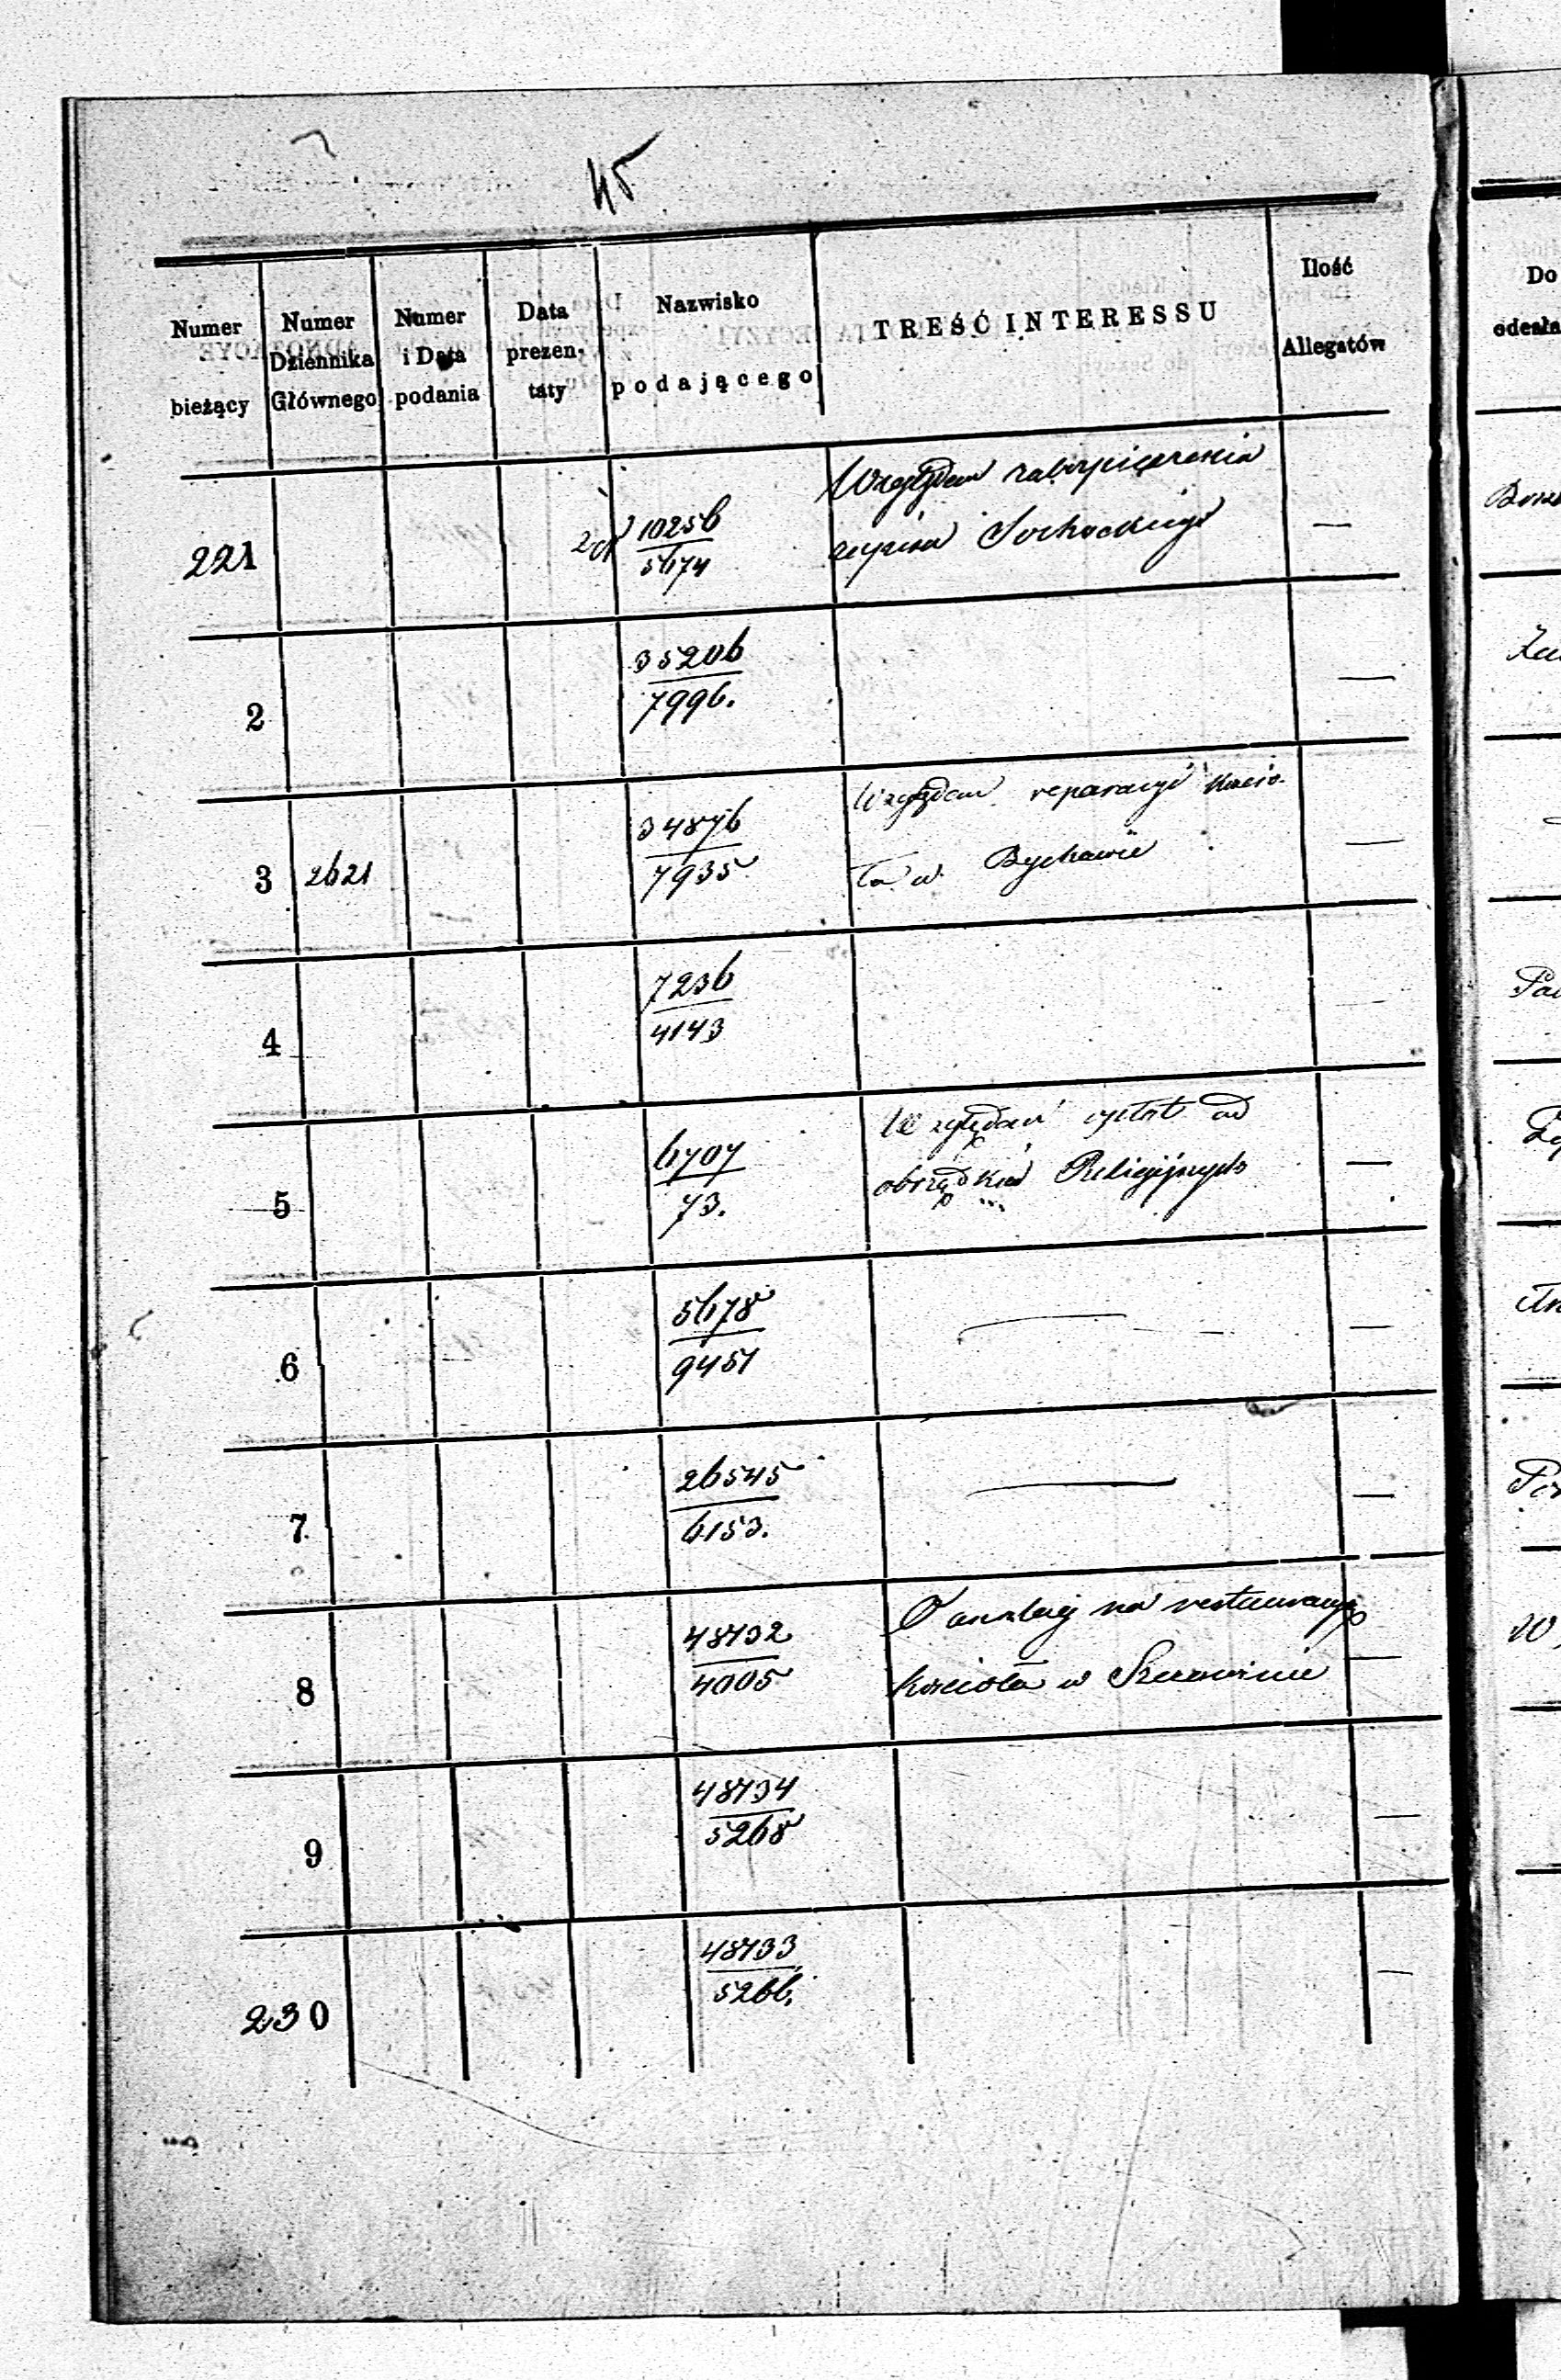 45
Numer bieżący
Numer Dziennika Głównego
Numer i Data podania
Data prezentaty
Nazwisko podającego
TREŚĆ INTERESSU
Ilość Allegatów
Do
odesła
221
10256
5674
Względem zabezpieczenia
zapisu Sochockiego
—
2
35206
7996.
—
3
2621
34876
7935
Względem reparacyi Kościo-
ła w Bychawie
—
4
7236
4143
—
5
6707
73.
Względem opłat od
obrządków Religijnych
—
6
5678
9451
—
—
7
26545
6153.
—
—
8
48732
4005
O anszlag na restauracyę
Kościoła w
—
9
48734
5268
—
230
48733
5266.
—